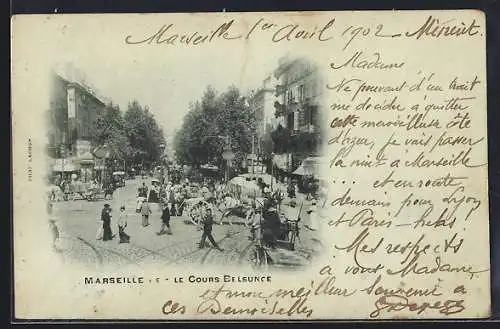 Marseille 1er Avril 1902 -
Madame
Ne pouvant d'un trait
me décider à quitter
cette merveilleuse côte
d'azur, je vais passer
la nuit à Marseille
.... et en route,
demain pour Lyon
et Paris - hélas
Mes respects
à vous Madame,
et mon meilleur souvenir à
ces Demoiselles
MARSEILLE - LE COURS BELSUNCE